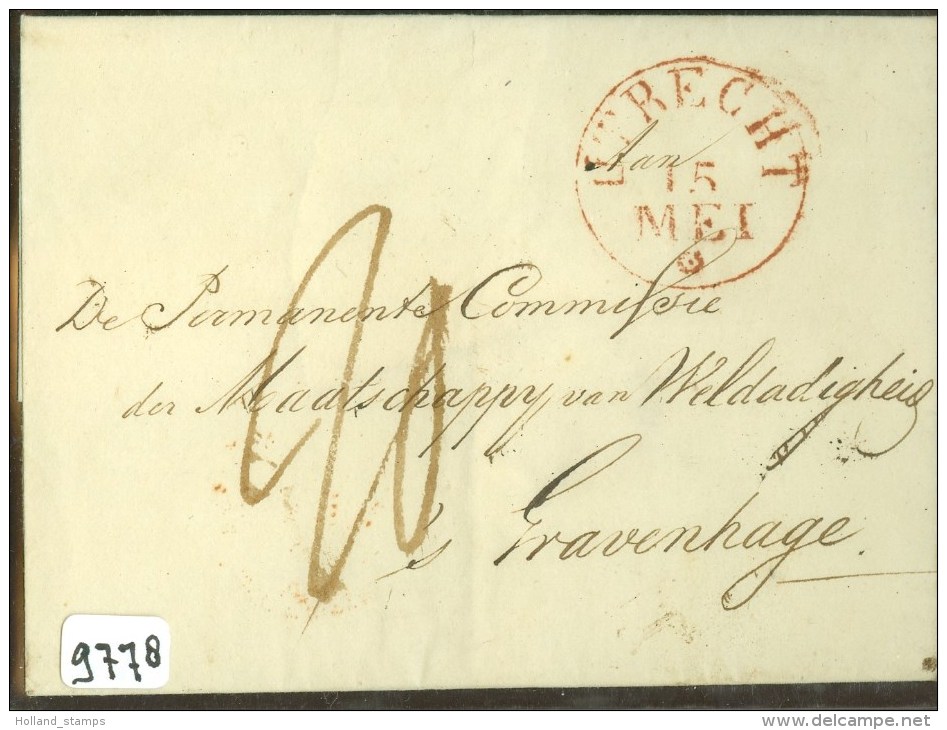 UTRECHT
15
MEI
Aan
De Permanente Commissie
der Maatschappy van Weldadigheid
's Gravenhage.
9778
Holland_stamps
www.delcampe.net